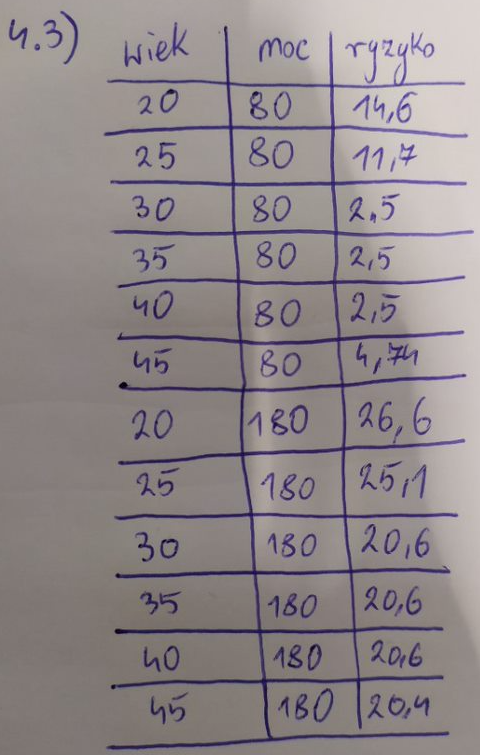 4.3)
wiek moc ryzyko
20 80 14,6
25 80 11,7
30 80 2,5
35 80 2,5
40 80 2,5
45 80 4,74
20 180 26,6
25 180 25,1
30 180 20,6
35 180 20,6
40 180 20,6
45 180 20,4